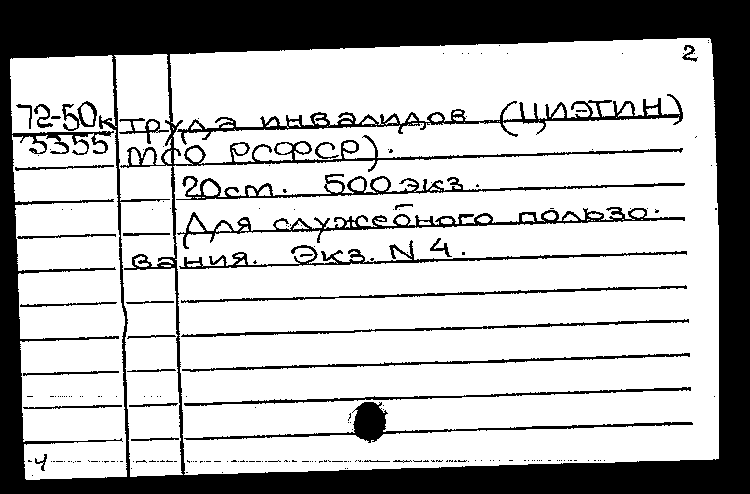 2
72-50к труда инвалидов (ЦИЭТИН)
3355 МСО РСФСР).
20см. 500 экз.
Для служебного пользо-
вания. Экз. N 4.
ч